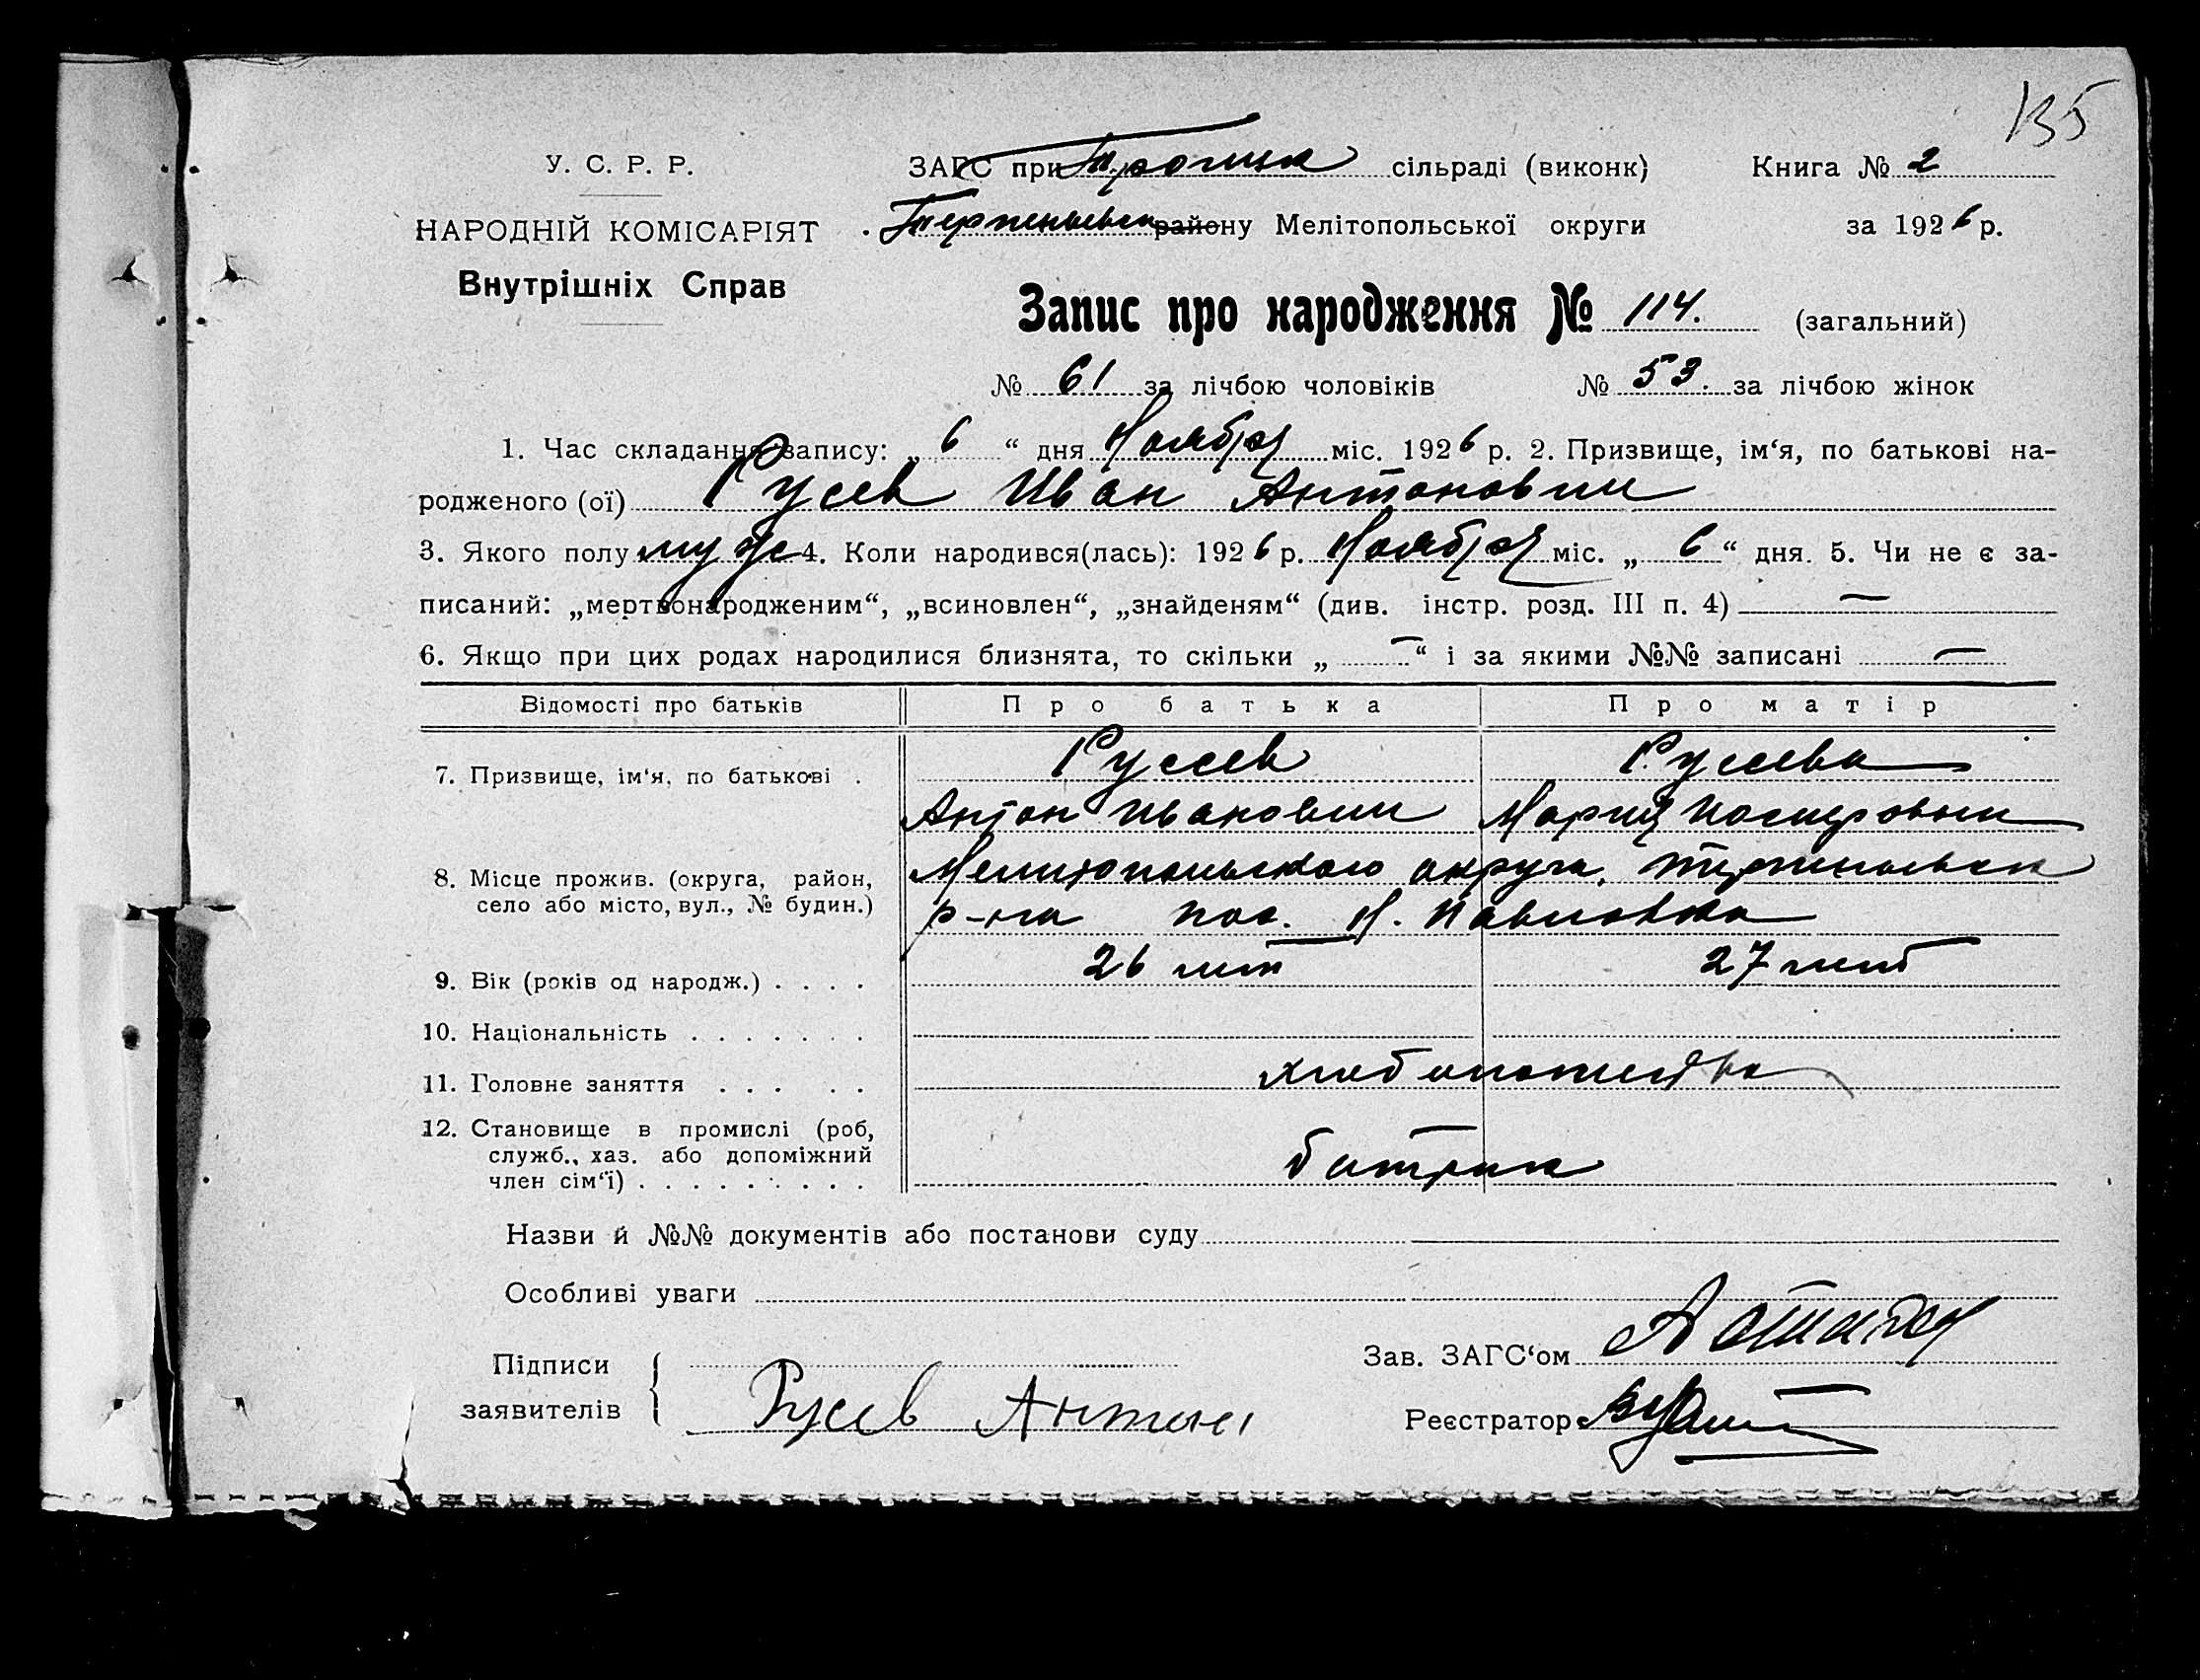 135
У. С. Р. Р.
ЗАГС при Троицк сільраді (виконк)
Книга № 2
НАРОДНІЙ КОМІСАРІЯТ
Терпеньевск району Мелітопольської округи
за 1926 р.
Внутрішніх Справ
Запис про народження № 114. (загальний)
№ 61 за лічбою чоловіків № 53. за лічбою жінок
1. Час складання запису: „ 6 “ дня Ноября міс. 1926 р. 2. Призвище, ім‘я, по батькові на-
родженого (ої) Русев Иван Антонович
3. Якого полу муж 4. Коли народився(лась): 1926 р. Ноября міс. „ 6 “ дня. 5. Чи не є за-
писаний: „мертвонародженим“, „всиновлен“, „знайденям“ (див. інстр. розд. III п. 4) —
6. Якщо при цих родах народилися близнята, то скільки „ — “ і за якими №№ записані —
Відомості про батьків Про батька Про матір
7. Призвище, ім‘я, по батькові . Руссев Руссева
Антон Иванович Мария
8. Місце прожив. (округа, район, Мелитопольского округа, Терпеньевск
село або місто, вул., № будин.) р-на пос. Н. Павловка
9. Вік (років од народж.) . . . . 26 лет 27 лет
10. Національність . . . . . . .
11. Головне заняття . . . . . хлебопашество
12. Становище в промислі (роб,
служб., хаз. або допоміжний батрак
член сім‘ї) . . . . . . . . .
Назви й №№ документів або постанови суду
Особливі уваги
Підписи
Зав. ЗАГС‘ом
заявителів Русев Антон
Реєстратор